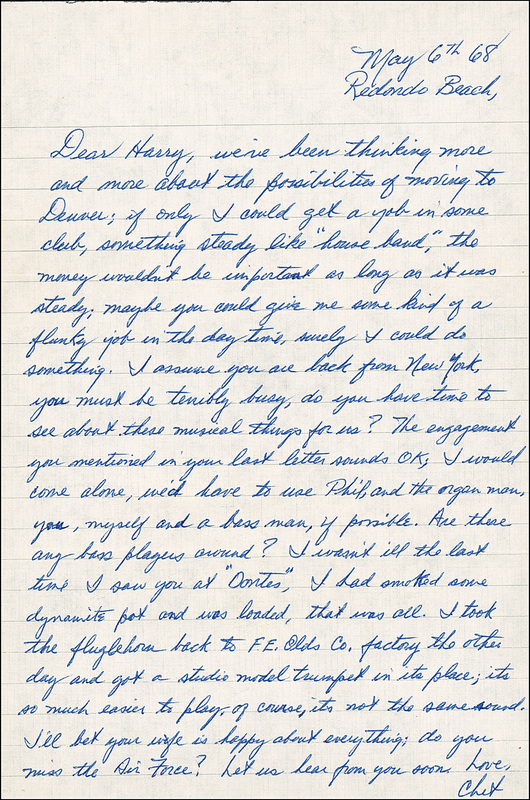 May 6th 68
Redondo Beach,
Dear Harry, we've been thinking more
and more about the possibilities of moving to
Denver; if only I could get a job in some
club, something steady like "house band", the
money wouldn't be important as long as it was
steady; maybe you could give me some kind of a
flunky job in the day time, surely I could do
something. I assume you are back from New York,
you must be terribly busy, do you have time to
see about these musical things for us? The engagement
you mentioned in your last letter sounds OK, I would
come alone, we'd have to use Phil, and the organ man,
you, myself and a bass man, if possible. Are there
any bass players around? I wasn't ill the last
time I saw you at "Dontes", I had smoked some
dynamite pot and was loaded, that was all. I took
the fluglehorn back to F.E. Olds Co. factory the other
day and got a studio model trumpet in its place; its
so much easier to play, of course, its not the same sound.
I'll bet your wife is happy about everything; do you
miss the Air Force? Let us hear from you soon. Love,
Chet